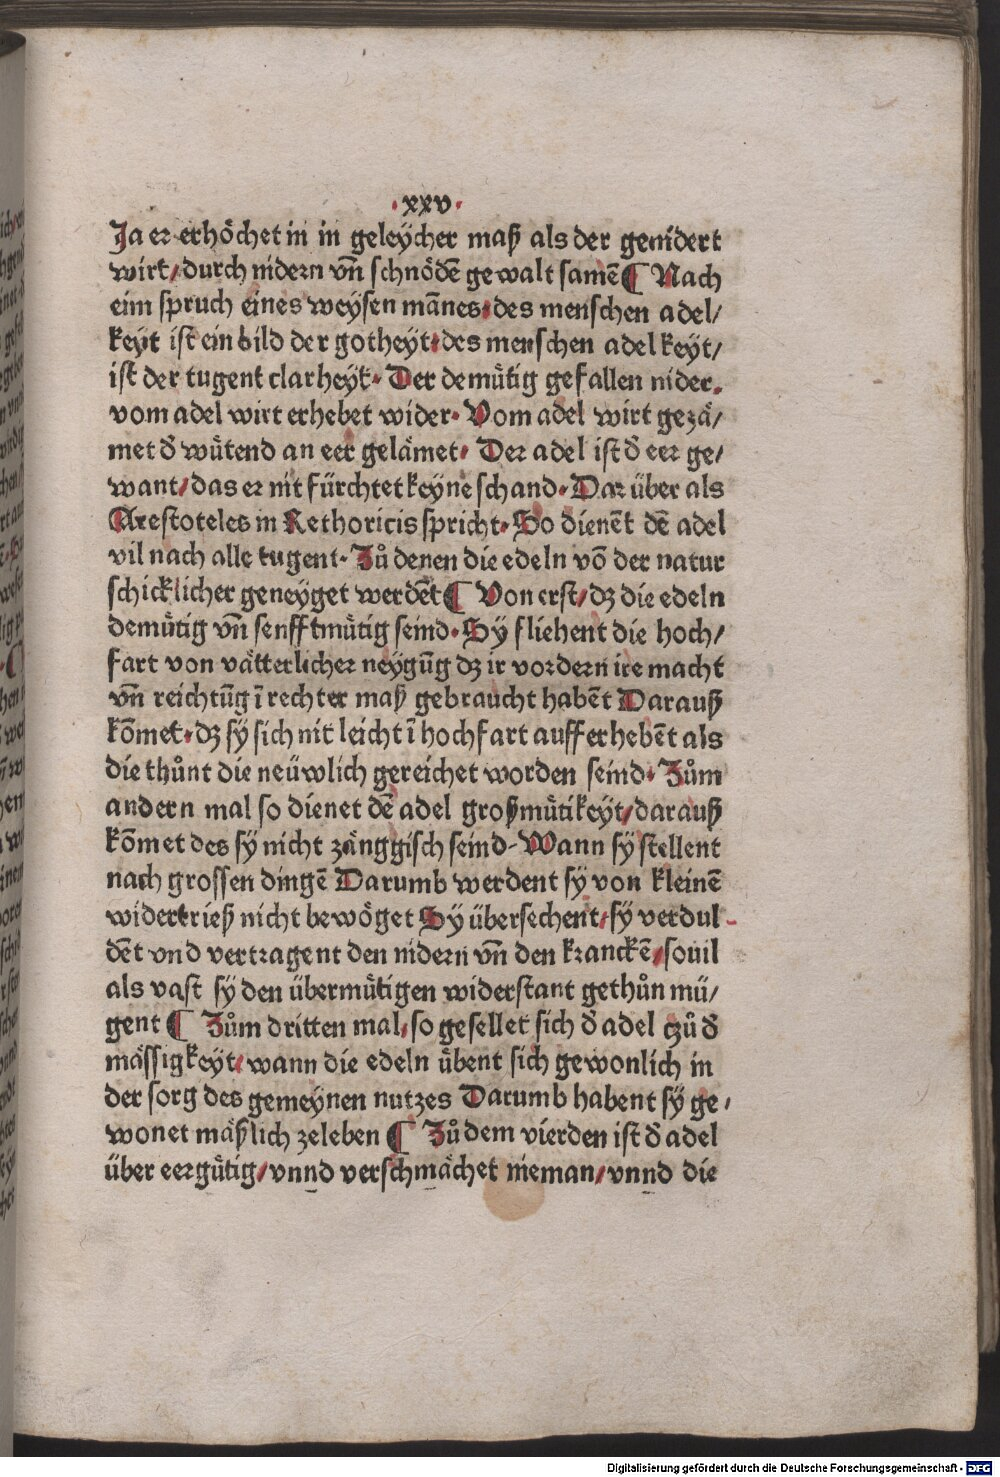 ·xxv·
Ja er erhöchet in in geleÿcher maß als der genidert
wirt/durch nidern vn̄ schnödē gewaltsamē ¶ Nach
eim spruch eines weysen mānes·des menschen adel/
keÿt ist ein bild der gotheyt·des menschen adelkeyt/
ist der tugent clarheyt· Der demütig gefallen nider.
vom adel wirt erhebet wider· Vom adel wirt gezä/
met d̄ wütend an eer gelämet· Der adel ist d̄ eer ge/
want/das er nit fürchtet keyne schand· Dar über als
Arestoteles in Rethoricis spricht· So dienēt dē adel
vil nach alle tugent· Zů denen die edeln vō der natur
schicklicher geneyget werdēt ¶ Von erst/dz die edeln
demütig vn̄ senfftmütig seind· Sÿ fliehent die hoch/
fart von vätterlicher neygūg dz ir vordern ire macht
vn̄ reichtūg ī rechter maß gebraucht habēt Darauß
kōmet·dz sÿ sich nit leicht ī hochfart aufferhebēt als
die thůnt die neüwlich gereichet worden seind· Zům
andern mal so dienet dē adel großmütikeyt/darauß
kōmet des sÿ nicht zänggisch seind· Wann sÿ stellent
nach grossen dingē Darumb werdent sÿ von kleinē
widertrieß nicht bewöget Sÿ übersechent/sÿ verdul
dēt vnd vertragent den nidern vn̄ den kranckē/souil
als vast sÿ den übermütigen widerstant gethůn mü/
gent ¶ Zům dritten mal/so gesellet sich d̄ adel tzů d̄
mässigkeyt/wann die edeln übent sich gewonlich in
der sorg des gemeynen nutzes Darumb habent sÿ ge/
wonet mäßlich zeleben ¶ Zů dem vierden ist d̄ adel
über eergütig/vnnd verschmächet nieman/vnnd die
Digitalisierung gefördert durch die Deutsche Forschungsgemeinschaft - DFG